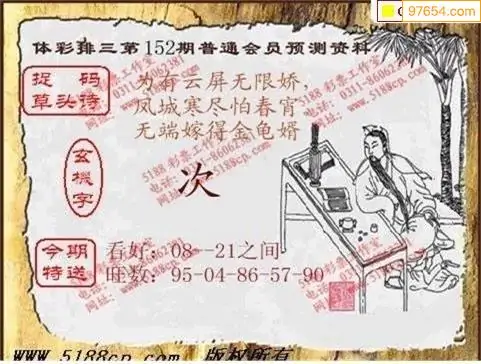 97654.com
体彩排三第152期普通会员预测资料
捉 码
草头诗
为有云屏无限娇,
凤城寒尽怕春宵
无端嫁得金龟婿
玄機字
次
今期
特送
看好:08--21之间
旺数:95-04-86-57-90
5188 彩票工作室
电话:0311-86062387
网址:www.5188cp.com
www.5188cp.com 版权所有